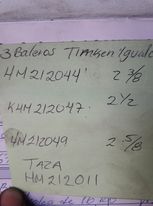 3 Baleros Timken Iguales
HM212044 2 3/8
KHM212047. 2 1/2
HM212049 2 5/8
TAZA
HM212011